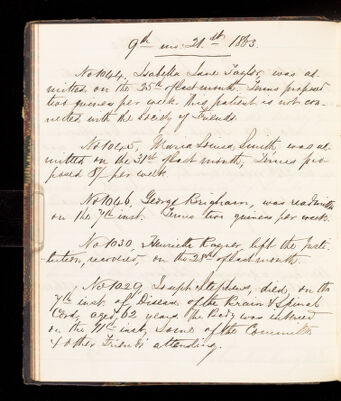 9th mo: 21st 1863.
No 1044, Isabella Jane Taylor, was ad-
mitted, on the 25th of last month. Terms proposed
two guineas per week. This patient is not con-
nected with the Society of Friends.
No 1045, Maria Louisa Smith, was ad-
mitted on the 31st of last month, Terms pro-
posed 8/- per week.
No 1046, George Brigham, was readmitted
on the 7th inst. Terms two guineas per week.
No 1030, Henrietta Rayner, left the Insti-
tution, recovered, on the 28th of last month.
No 1029, Joseph Stephens, died, on the
7th inst. of Disease of the Brain & Spinal
Cord, aged 62 years. The Body was interred
on the 11th inst, some of the Committee
& other Friends attending.